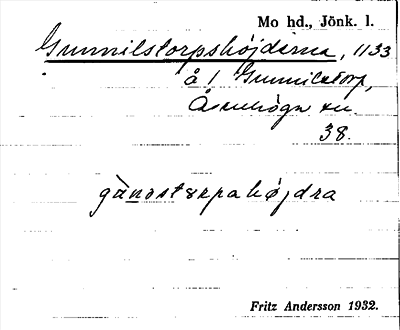 Mo hd., Jönk. l.
Gunnilstorpshöjderna, 1133
å 1 Gunnilstorp,
Åsenhöga sn
38.
gànəstərpahøjdra
Fritz Andersson 1932.